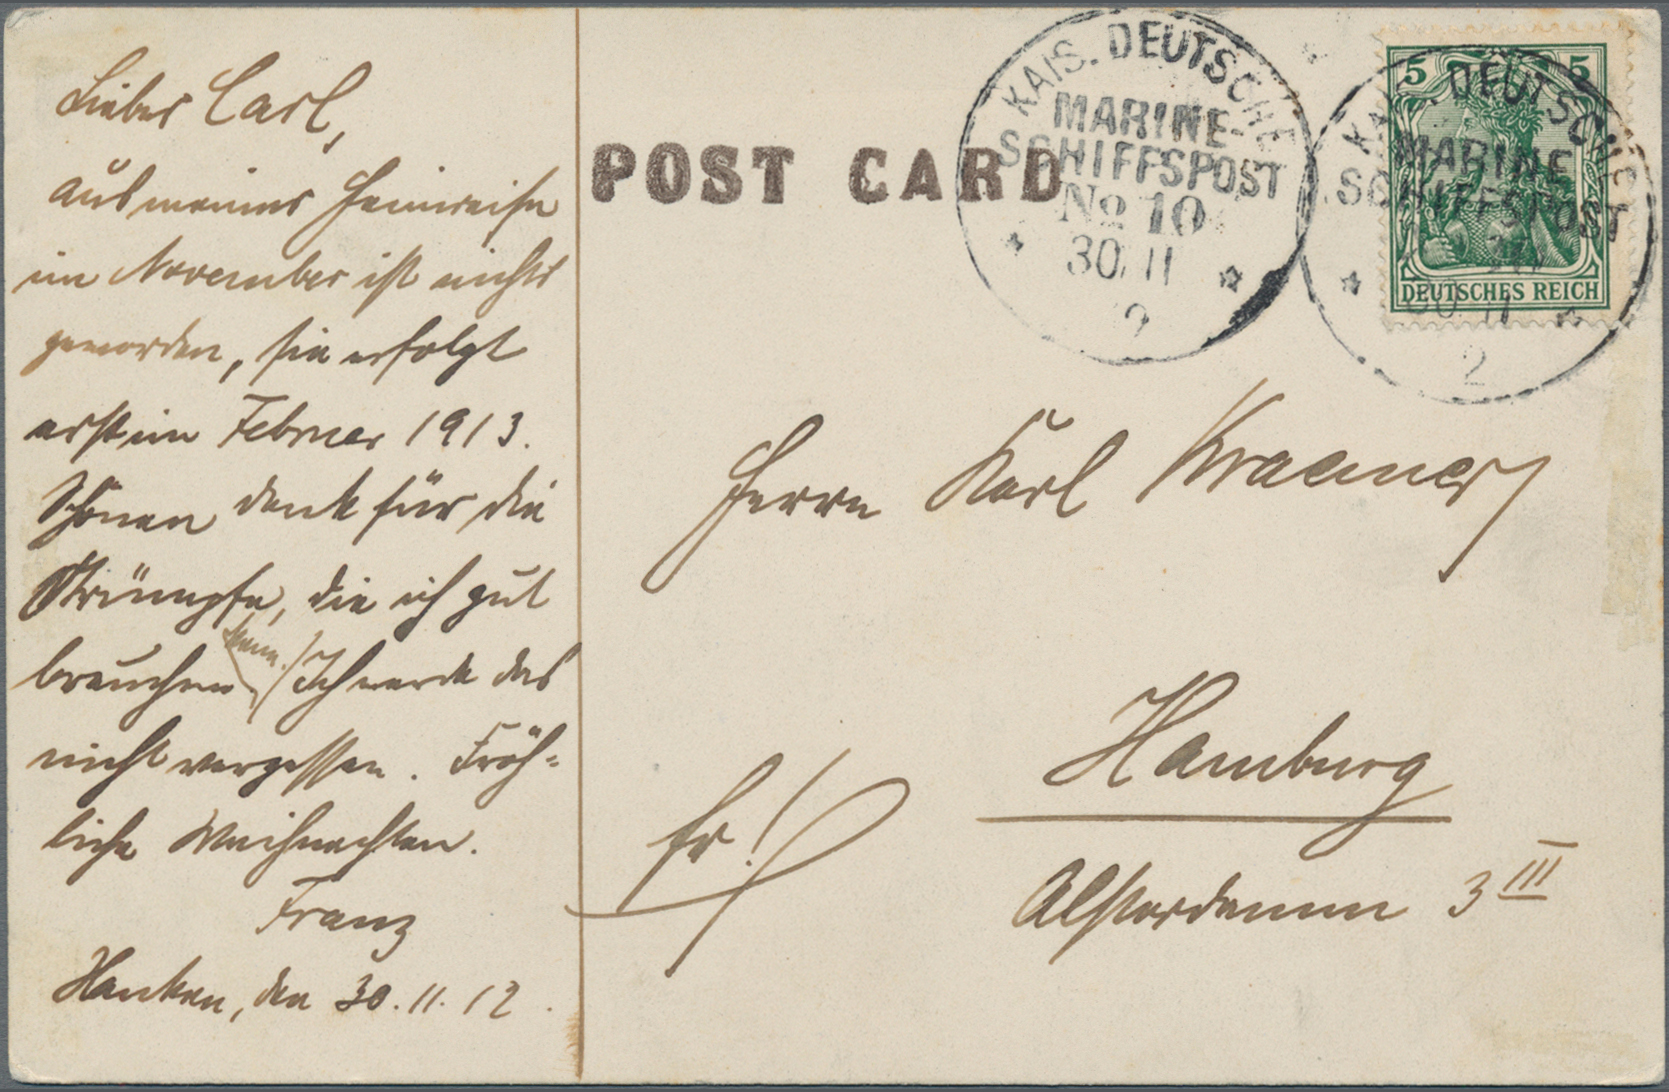 Lieber Carl,
aus meiner Heimreise
im November ist nichts
geworden, sie erfolgt
erst im Februar 1913.
Schönen Dank für die
Strümpfe, die ich gut
brauchen kann. Ich werde das
nicht vergessen. Fröh-
liche Weihnachten.
Franz
Hankau, den 30.11.12.
POST CARD
KAIS. DEUTSCHE
MARINE-
SCHIFFSPOST
No 10
30/11
2
5 5
DEUTSCHES REICH
KAIS. DEUTSCHE
MARINE
SCHIFFSPOST
30 11
2
Herrn Karl
Hamburg
fr.!
Alsterdamm 3 III